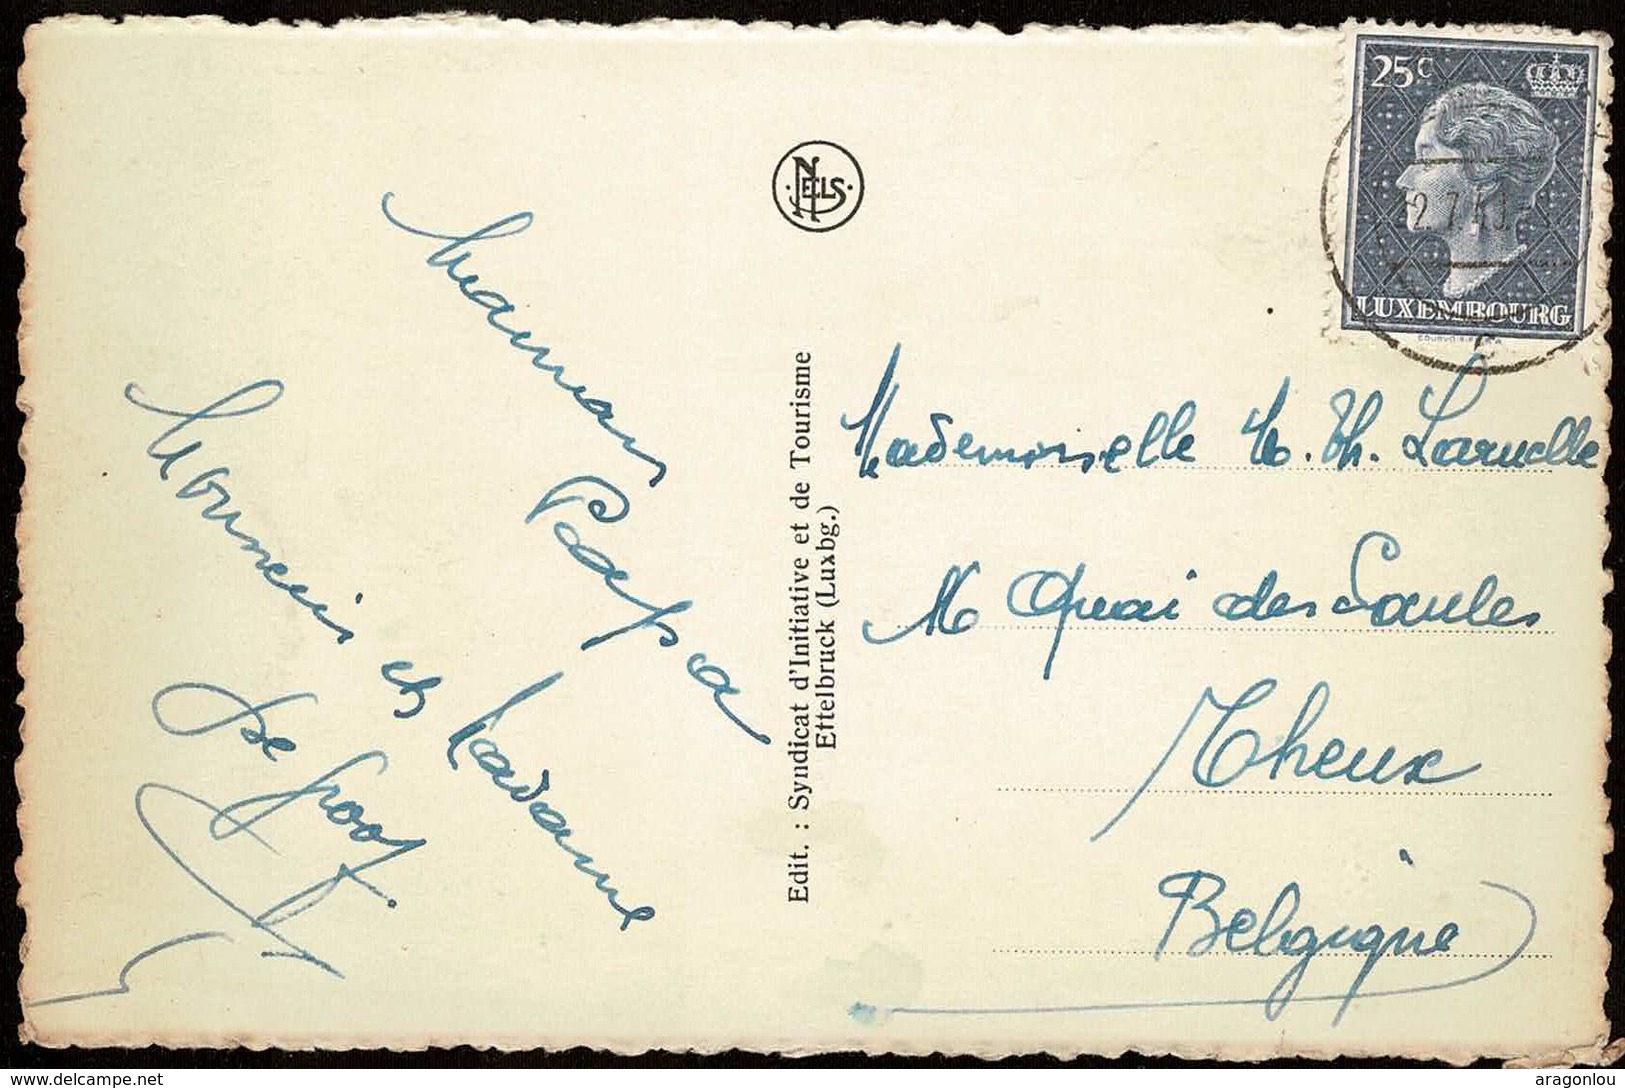 Maman
Papa
Monsieur et Madame
De Groot
NELS
Edit. : Syndicat d'Initiative et de Tourisme
Ettelbruck (Luxbg.)
25 C
LUXEMBOURG
COURVOISIER S.A.
Mademoiselle M. Th. Laruelle
Quai des Saules
Theux
Belgique
delcampe.net
aragonlou